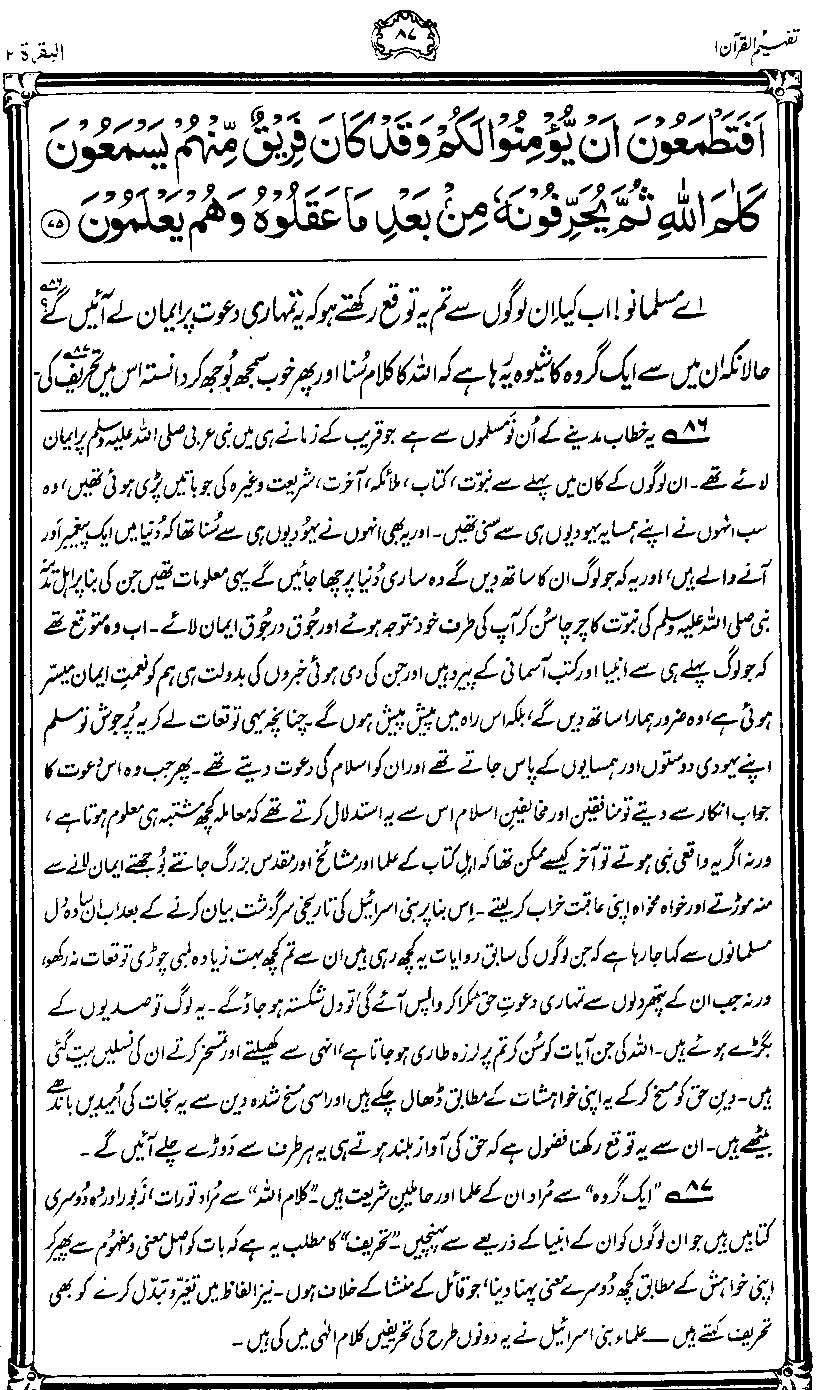 تفہیم القرآن ۱
۸۷
البقرۃ ۲
اَفَتَطْمَعُوْنَ اَنْ يُّؤْمِنُوْا لَكُمْ وَقَدْ كَانَ فَرِيْقٌ مِّنْهُمْ يَسْمَعُوْنَ
كَلٰمَ اللّٰهِ ثُمَّ يُحَرِّفُوْنَهٗ مِنْۢ بَعْدِ مَا عَقَلُوْهُ وَهُمْ يَعْلَمُوْنَ ۷۵
اے مسلمانو! اب کیا اِن لوگوں سے تم یہ توقع رکھتے ہو کہ یہ تمہاری دعوت پر ایمان لے آئیں گے؟ ۸۶
حالانکہ ان میں سے ایک گروہ کا شیوہ یہ رہا ہے کہ اللہ کا کلام سُنا اور پھر خوب سمجھ بُوجھ کر دانستہ اس میں تحریف کی۔ ۸۷
۸۶ یہ خطاب مدینے کے اُن نَو مسلموں سے ہے جو قریب کے زمانے ہی میں نبی عربی صلی اللہ علیہ وسلم پر ایمان
لائے تھے۔ ان لوگوں کے کان میں پہلے سے نبوّت، کتاب، ملائکہ، آخرت، شریعت وغیرہ کی جو باتیں پڑی ہوئی تھیں، وہ
سب انہوں نے اپنے ہمسایہ یہودیوں ہی سے سنی تھیں۔ اور یہ بھی انہوں نے یہُودیوں ہی سے سُنا تھا کہ دُنیا میں ایک پیغمبر اَور
آنے والے ہیں، اور یہ کہ جو لوگ ان کا ساتھ دیں گے وہ ساری دُنیا پر چھا جائیں گے۔ یہی معلومات تھیں جن کی بنا پر اہلِ مدینہ
نبی صلی اللہ علیہ وسلم کی نبوّت کا چرچا سُن کر آپ کی طرف خود متوجہ ہوئے اور جُوق در جُوق ایمان لائے۔ اب وہ متوقع تھے
کہ جو لوگ پہلے ہی سے انبیا اور کتب آسمانی کے پیرو ہیں اور جن کی دی ہوئی خبروں کی بدولت ہی ہم کو نعمتِ ایمان میسّر
ہوئی ہے، وہ ضرور ہمارا ساتھ دیں گے، بلکہ اس راہ میں پیش پیش ہوں گے۔ چنانچہ یہی توقعات لے کر یہ پُرجوش نو مسلم
اپنے یہودی دوستوں اور ہمسایوں کے پاس جاتے تھے اور ان کو اسلام کی دعوت دیتے تھے۔ پھر جب وہ اس دعوت کا
جواب انکار سے دیتے تو منافقین اور مخالفینِ اسلام اس سے یہ استدلال کرتے تھے کہ معاملہ کچھ مشتبہ ہی معلوم ہوتا ہے،
ورنہ اگر یہ واقعی نبی ہوتے تو آخر کیسے ممکن تھا کہ اہلِ کتاب کے علما اور مشائخ اور مقدس بزرگ جانتے بُوجھتے ایمان لانے سے
منہ موڑتے اور خواہ مخواہ اپنی عاقبت خراب کر لیتے۔ اِس بنا پر بنی اسرائیل کی تاریخی سرگزشت بیان کرنے کے بعد اب اِن سادہ دل
مسلمانوں سے کہا جا رہا ہے کہ جن لوگوں کی سابق روایات یہ کچھ رہی ہیں ان سے تم کچھ بہت زیادہ لمبی چوڑی توقعات نہ رکھو،
ورنہ جب ان کے پتھر دلوں سے تمہاری دعوتِ حق ٹکرا کر واپس آئے گی تو دل شکستہ ہو جاؤ گے۔ یہ لوگ تو صدیوں کے
بگڑے ہوئے ہیں۔ اللہ کی جن آیات کو سُن کر تم پر لرزہ طاری ہو جاتا ہے، انہی سے کھیلتے اور تمسخر کرتے ان کی نسلیں بیت گئی
ہیں۔ دینِ حق کو مسخ کر کے یہ اپنی خواہشات کے مطابق ڈھال چکے ہیں اور اسی مسخ شدہ دین سے یہ نجات کی اُمیدیں باندھے
بیٹھے ہیں۔ ان سے یہ توقع رکھنا فضول ہے کہ حق کی آواز بلند ہوتے ہی یہ ہر طرف سے دَوڑے چلے آئیں گے۔
۸۷ ”ایک گروہ“ سے مُراد ان کے علما اور حاملینِ شریعت ہیں۔ ”کلام اللہ“ سے مُراد تورات، زَبُور اور وُہ دُوسری
کتابیں ہیں جو ان لوگوں کو ان کے انبیا کے ذریعے سے پہنچیں۔ ”تحریف“ کا مطلب یہ ہے کہ بات کو اصل معنی و مفہُوم سے پھیر کر
اپنی خواہش کے مطابق کچھ دُوسرے معنی پہنا دینا، جو قائل کے منشا کے خلاف ہوں۔ نیز الفاظ میں تغیّر و تبدّل کرنے کو بھی
تحریف کہتے ہیں — علماءِ بنی اسرائیل نے یہ دونوں طرح کی تحریفیں کلامِ الٰہی میں کی ہیں۔